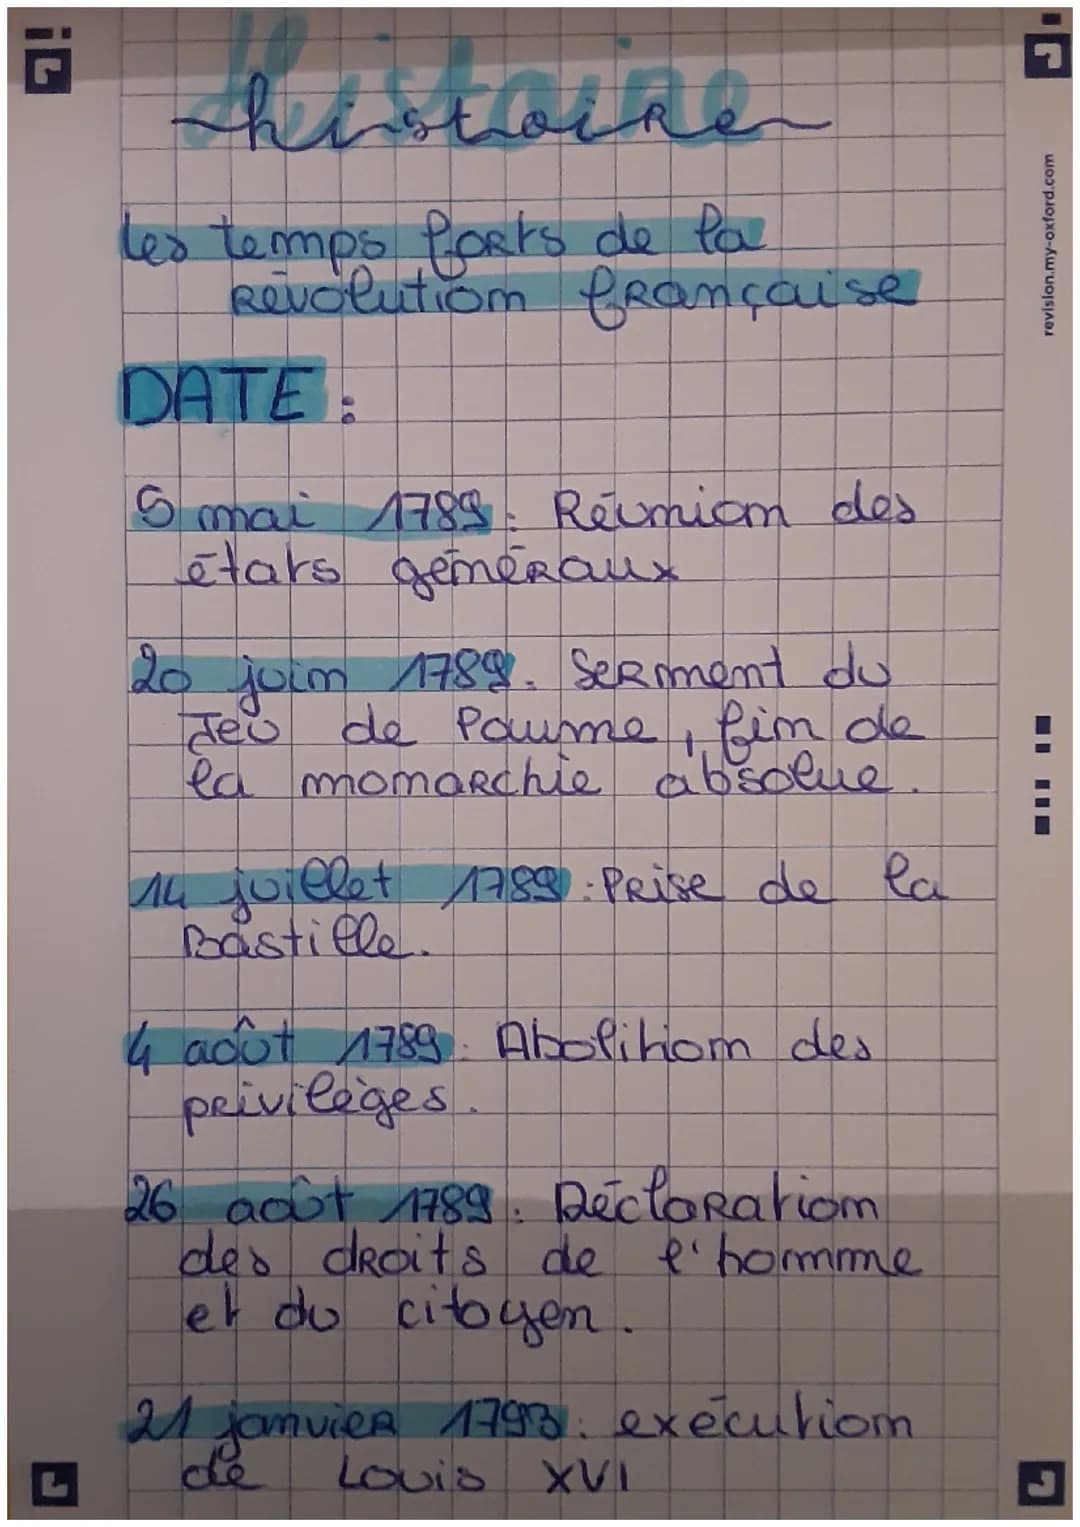 Histoire
histoire
les temps forts de la
Révolution française
DATE :
5 mai 1789 : Réunion des
états généraux
20 juin 1789 : Serment du
Jeu de Paume, fin de
la monarchie absolue.
14 juillet 1789 : Prise de la
Bastille.
4 août 1789 : Abolition des
privilèges.
26 août 1789 : Déclaration
des droits de l'homme
et du citoyen.
21 janvier 1793 : exécution
de Louis XVI
revision.my-oxford.com